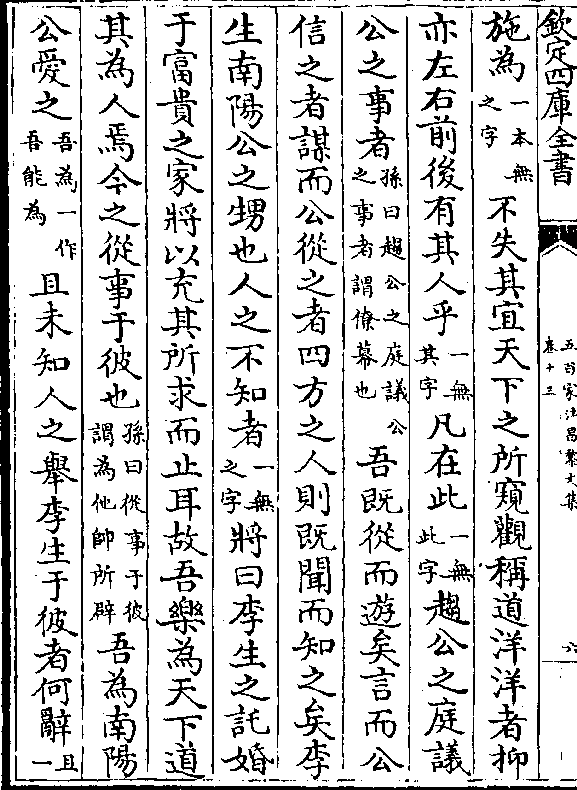 欽定四庫全書
五百家注昌黎文集
卷十三
六
施為一本無之字不失其宜天下之所窺觀稱道洋洋者抑
亦左右前後有其人乎一無其字凡在此一無此字趨公之庭議
公之事者孫曰趨公之庭議公之事者謂僚幕也吾既從而遊矣言而公
信之者謀而公從之者四方之人則既聞而知之矣李
生南陽公之甥也人之不知者一無之字將曰李生之託婚
于富貴之家將以充其所求而止耳故吾樂為天下道
其為人焉今之從事于彼也孫曰從事于彼謂為他帥所辟吾為南陽
公愛之吾為一作吾能為且未知人之舉李生于彼者何辭且一